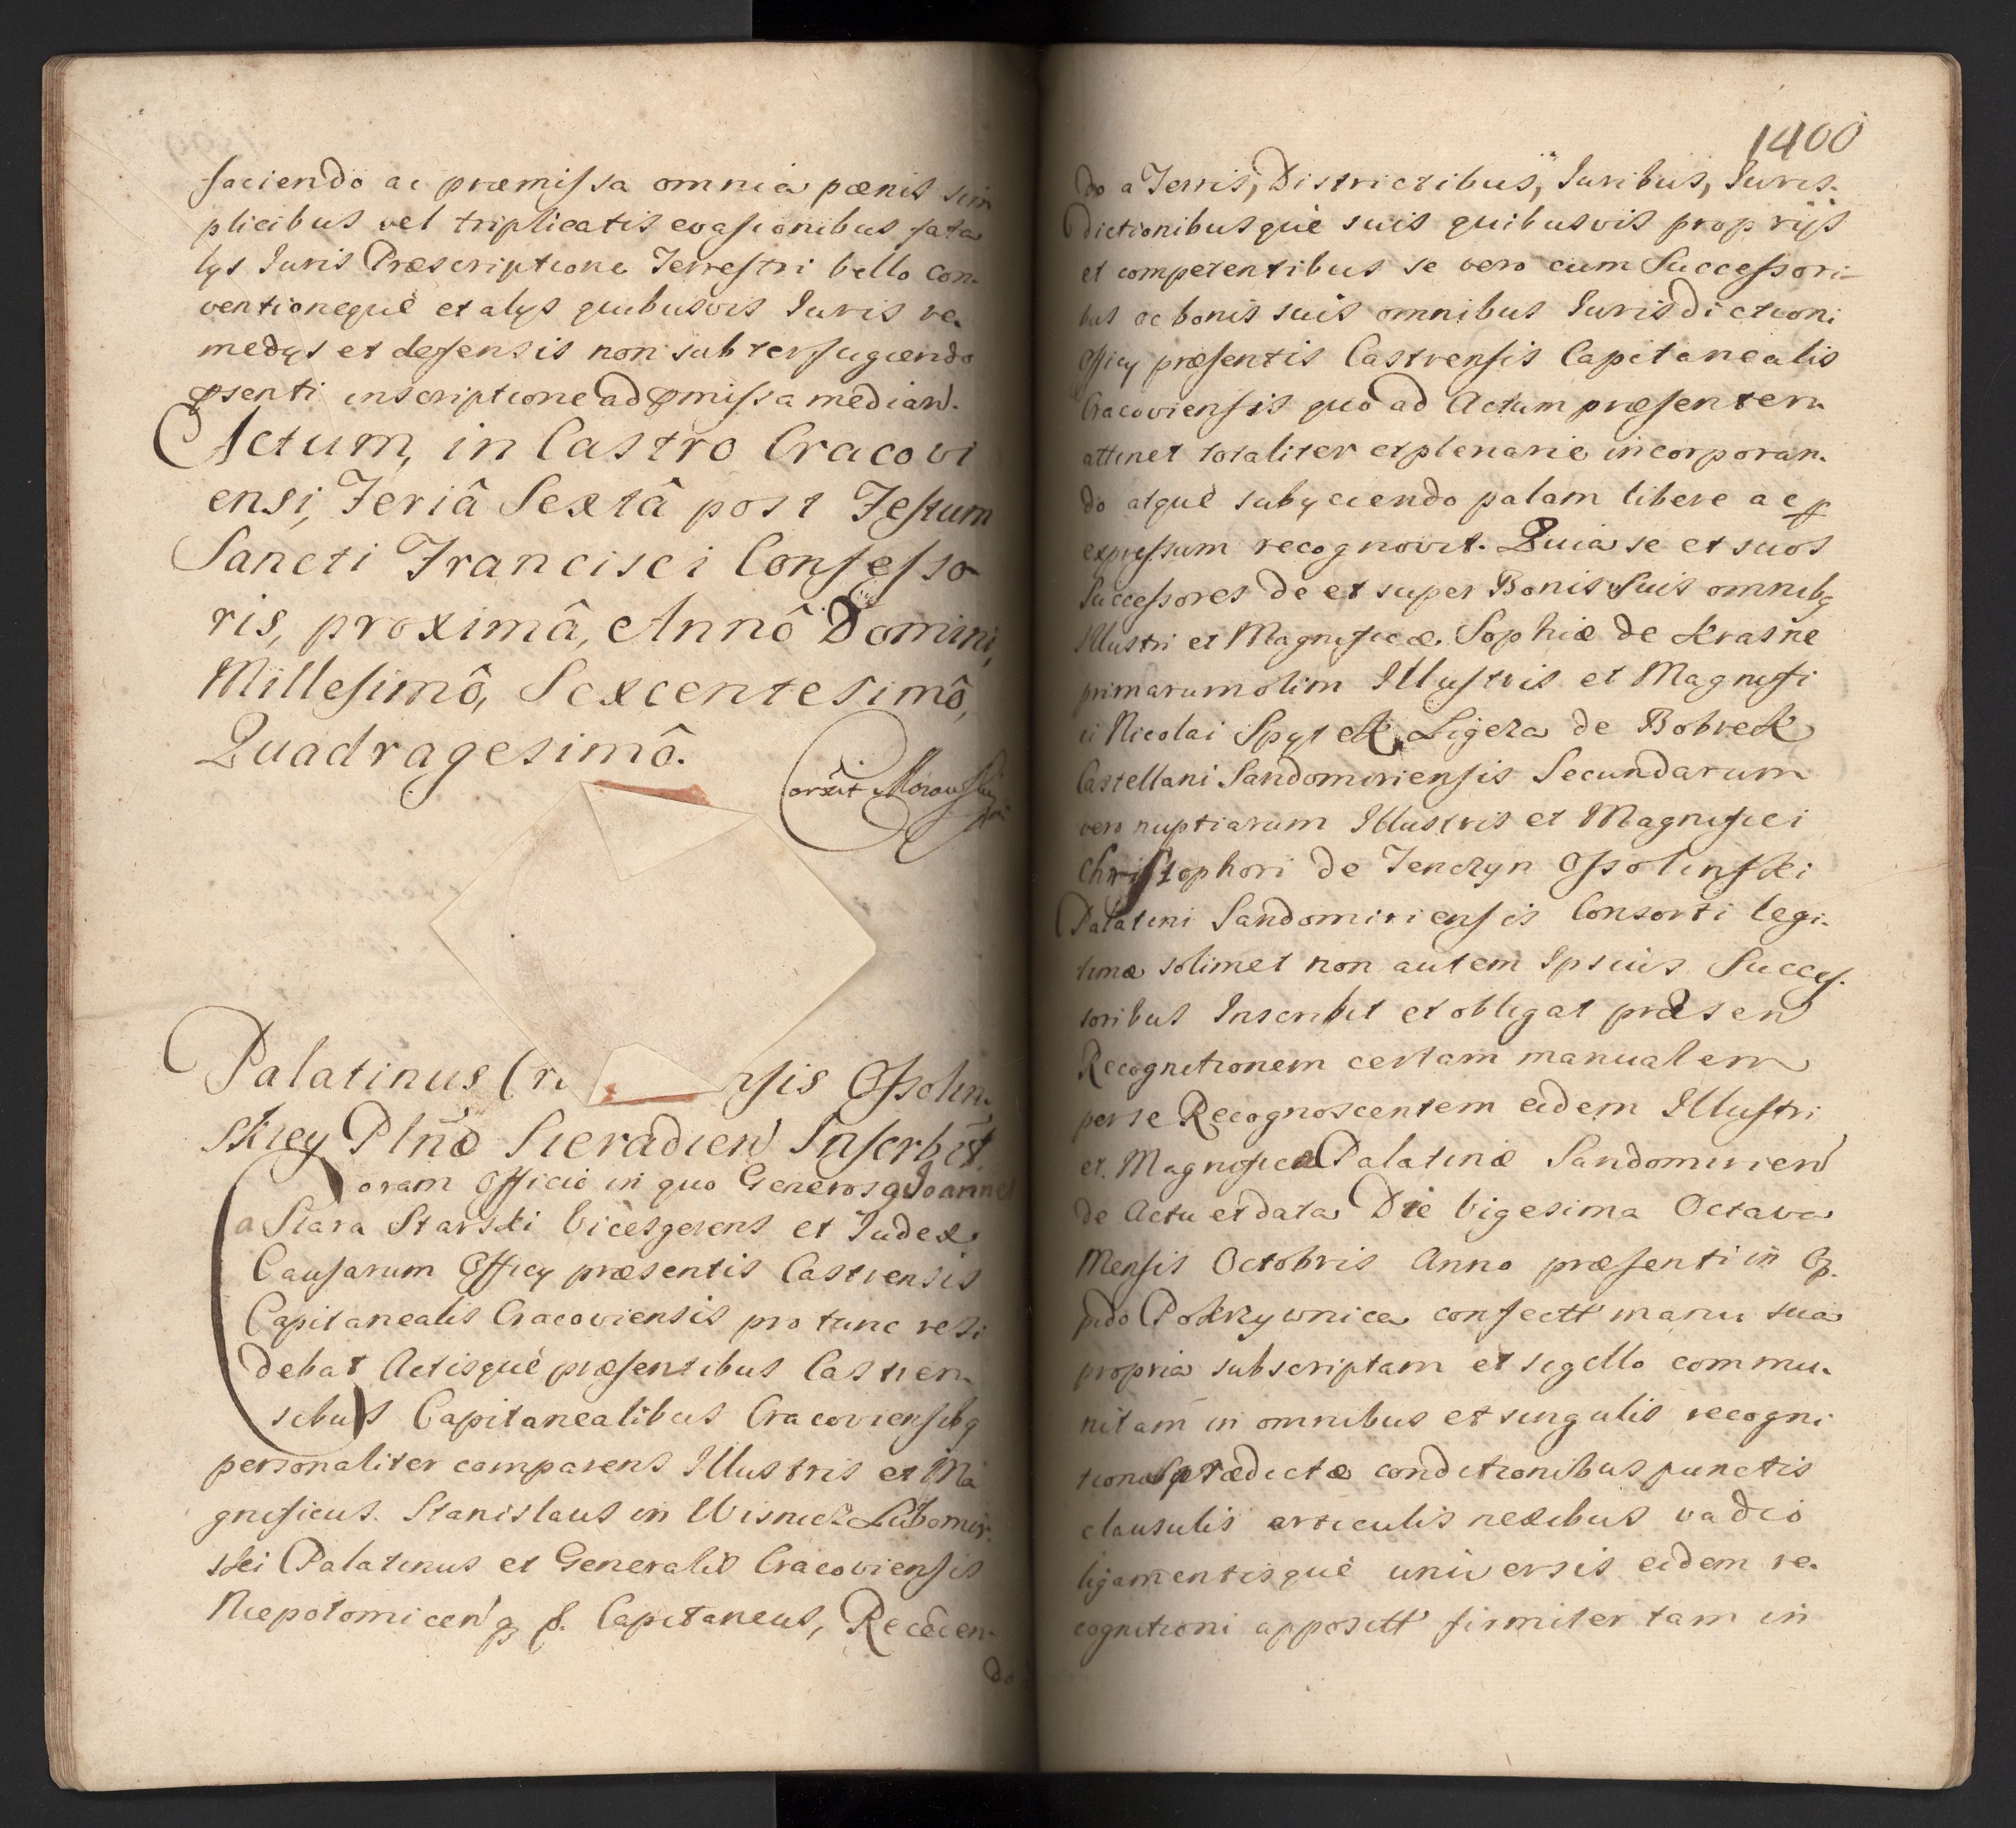 faciendo ac præmissa omnia pœnis sim
plicibus vel triplicatis evasionibus fata
lys Iuris Præscriptione Terrestri bello con-
ventioneque et alys quibusvis Iuris re-
medys et defensis non subterfugiendo
pſenti inscriptione ad pmissa median.
Actum, in Castro Cracovi
ensi, Feriâ Sextâ post Festum
Sancti Francisci Confesso
ris, proximâ, Annô Domini,
Millesimô, Sexcentesimô,
Quadragesimô.
Palatinus Cra nsis Ossolin-
skiey Plnæ Sieradien Inscrbit
Coram Officio in quo Generosq Joannes
a Siara Starski Vicesgerens et Iudex
Causarum Officy præsentis Castrensis
Capitanealis Cracoviensis pro tunc resi
debat Actisque præsentibus Castren-
sibus Capitanealibus Cracoviensibq
personaliter comparens Illustris et Ma
gnificus. Stanislaus in Wisnicz Lubomir-
ski Palatinus et Generalis Cracoviensis
Niepolomicen q S. Capitaneus, Receden-
do
1400
do a Terris, Districtibus, Iuribus, Iuris-
dictionibusque suis quibusvis proprijs
et competentibus se vero cum Successori-
bus ac bonis suis omnibus Iurisdictioni
Officy præsentis Castrensis Capitanealis
Cracoviensis quo ad Actum præsentem
attinet totaliter et plenarie incorporan-
do atque subyciendo palam libere ac p
expressum recognovit. Quia se et suos
Successores de et super Bonis Suis omnibq
Illustri et Magnificæ Sophiæ de Krasne
primarum olim Illustris et Magnifi
ci Nicolai Spytek Ligeza de Bobrek
Castellani Sandomiriensis Secundarum
vero nuptiarum Illustris et Magnifici
Christophori de Tenczyn Ossolinski
Palatini Sandomiriensis Consorti legi-
timæ solimet non autem Ipsius Succes-
soribus Inscribit et obligat præsen
Recognitionem certam manualem
per se Recognoscentem eidem Illustri
et Magnificæ Palatinæ Sandomirien
de Actu et data Die Vigesima Octava
Mensis Octobris Anno præsenti in Op-
pido Pokrzywnica confectt manu sua
propria subscriptam et sigello commu-
nitam in omnibus et singulis recogni
tionis prædictæ conditionibus punctis
clausulis articulis nexibus vadio
ligamentisque universis eidem re-
cognitioni appositt firmiter tam in